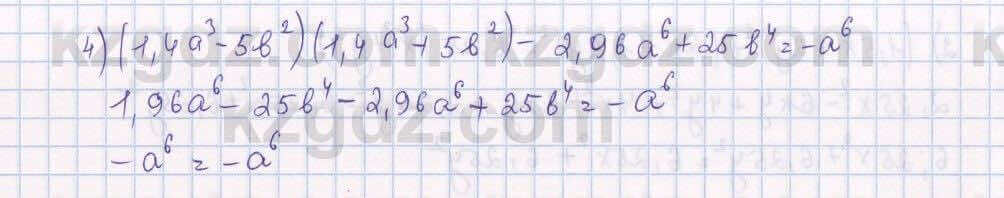 4) (1,4a³ - 5b²)(1,4a³ + 5b²) - 2,96a⁶ + 25b⁴ = -a⁶
1,96a⁶ - 25b⁴ - 2,96a⁶ + 25b⁴ = -a⁶
-a⁶ = -a⁶
kzgdz.com